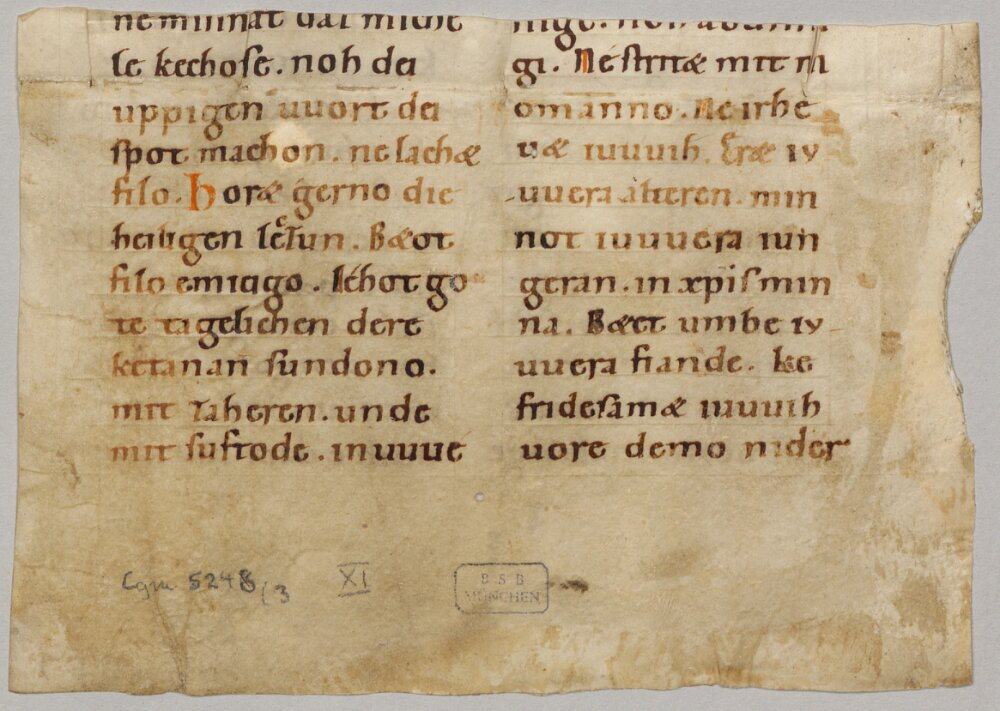 neminnat dal michi
le kechose. noh dei
uppigen uuort dei
spot machon. ne lachæ
filo. horæ gerno die
heiligen lecſun. Bæot
filo emicigo. Iehot go
te tagelichen dere
ketanan sundono.
mit zaheren. unde
mit suftode. in uuue
gi. Ne stritæ mit ni
omanno. Ne irbe
uuih. Eræ iv
uuera alteren. min
not iuuuera iun
geran. in xpis min
na. Bætet umbe iv
uuera fiande. ke
fridesamæ iuuuih
uore demo nider
Cgm 5248(3
XI
B S B
MÜNCHEN